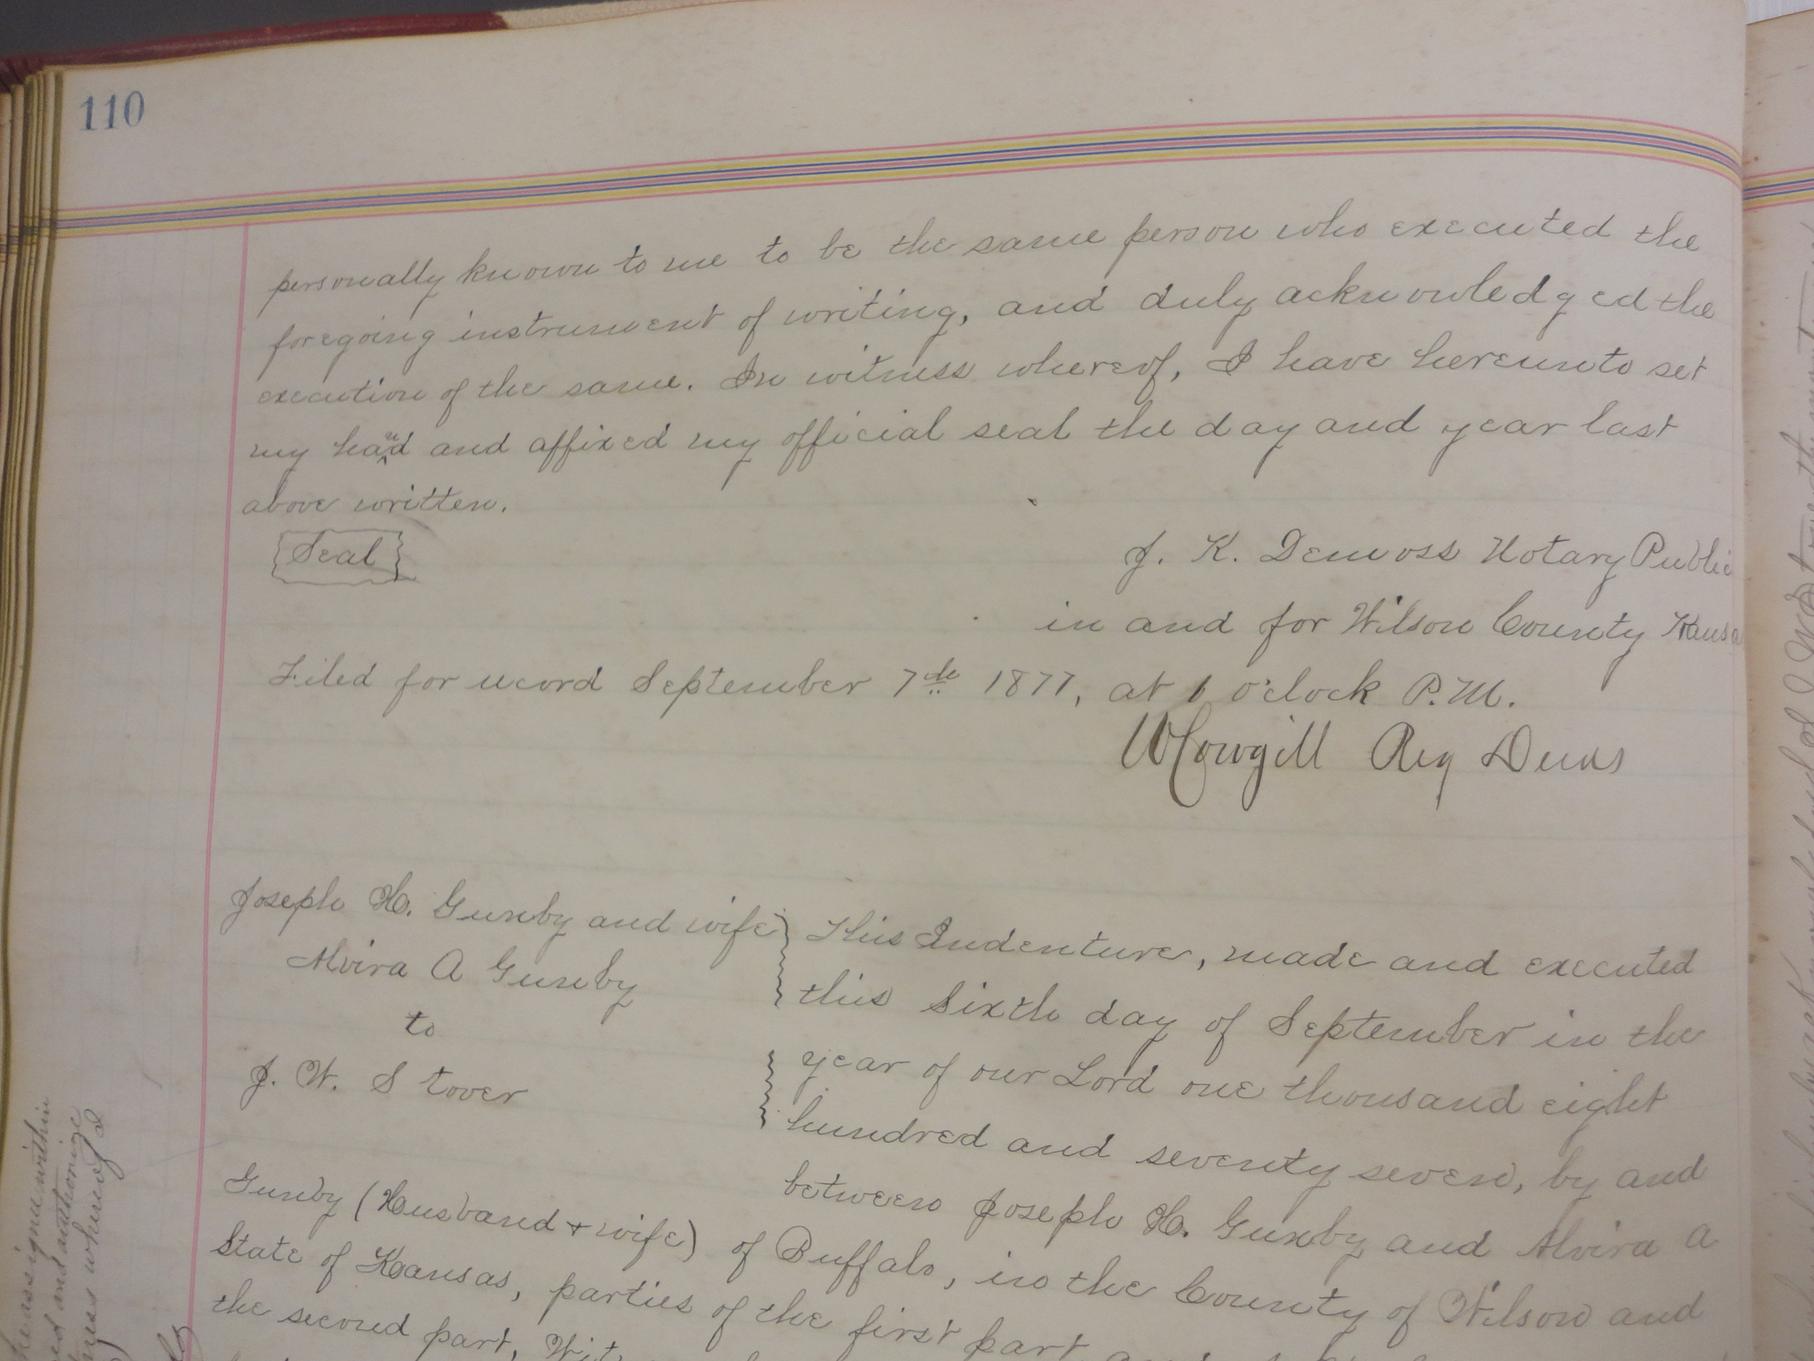 110
personally known to me to be the same person who executed the
foregoing instrument of writing, and duly acknowledged the
execution of the same. In witness whereof, I have hereunto set
my hand and affixed my official seal the day and year last
above written.
Seal
J. K. Demoss Notary Public
in and for Wilson County Kansa
Filed for record September 7th 1877, at 1 o'clock P.M.
W Cowgill Reg Deeds
Joseph H. Gunby and wife
Alvira A Gunby
to
J. W. Stover
This Indenture, made and executed
this Sixth day of September in the
year of our Lord one thousand eight
hundred and seventy seven, by and
between Joseph H. Gunby and Alvira A
Gunby (Husband + wife) of Buffalo, in the County of Wilson and
State of Kansas, parties of the first part
the second part,
within
and authorize
whereof I